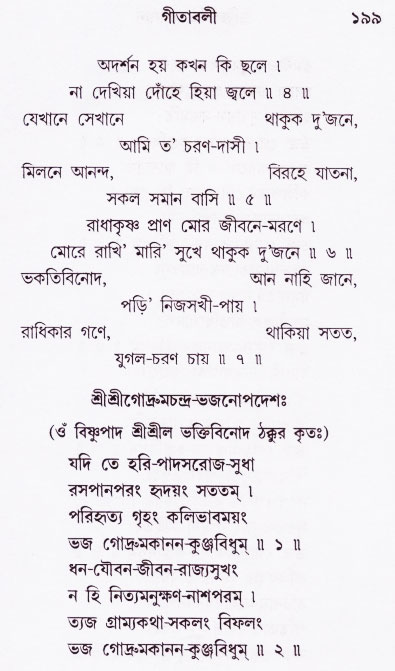 গীতাবলী ১৯৯
অদর্শন হয় কখন কি ছলে ।
না দেখিয়া দোঁহে হিয়া জ্বলে ॥ ৪ ॥
যেখানে সেখানে থাকুক দু’জনে,
আমি ত’ চরণ-দাসী ।
মিলনে আনন্দ, বিরহে যাতনা,
সকল সমান বাসি ॥ ৫ ॥
রাধাকৃষ্ণ প্রাণ মোর জীবনে-মরণে ।
মোরে রাখি’ মারি’ সুখে থাকুক দু’জনে ॥ ৬ ॥
ভকতিবিনোদ, আন নাহি জানে,
পড়ি’ নিজসখী-পায় ।
রাধিকার গণে, থাকিয়া সতত,
যুগল-চরণ চায় ॥ ৭ ॥
শ্রীশ্রীগোদ্রুমচন্দ্র-ভজনোপদেশঃ
(ওঁ বিষ্ণুপাদ শ্রীশ্রীল ভক্তিবিনোদ ঠক্কুর কৃতঃ)
যদি তে হরি-পাদসরোজ-সুধা
রসপানপরং হৃদয়ং সততম্ ।
পরিহৃত্য গৃহং কলিভাবময়ং
ভজ গোদ্রুমকানন-কুঞ্জবিধুম্ ॥ ১ ॥
ধন-যৌবন-জীবন-রাজ্যসুখং
ন হি নিত্যমনুক্ষণ-নাশপরম্ ।
ত্যজ গ্রাম্যকথা-সকলং বিফলং
ভজ গোদ্রুমকানন-কুঞ্জবিধুম্ ॥ ২ ॥